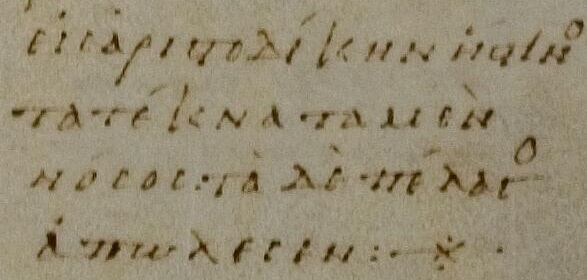 εἰς ἀριστοδίκην ἧστινο
τὰ τέκνα τὰ μὲν
νόσος· τὰ δὲ πέλαγο
ἀπώλεσεν :- ※ ·